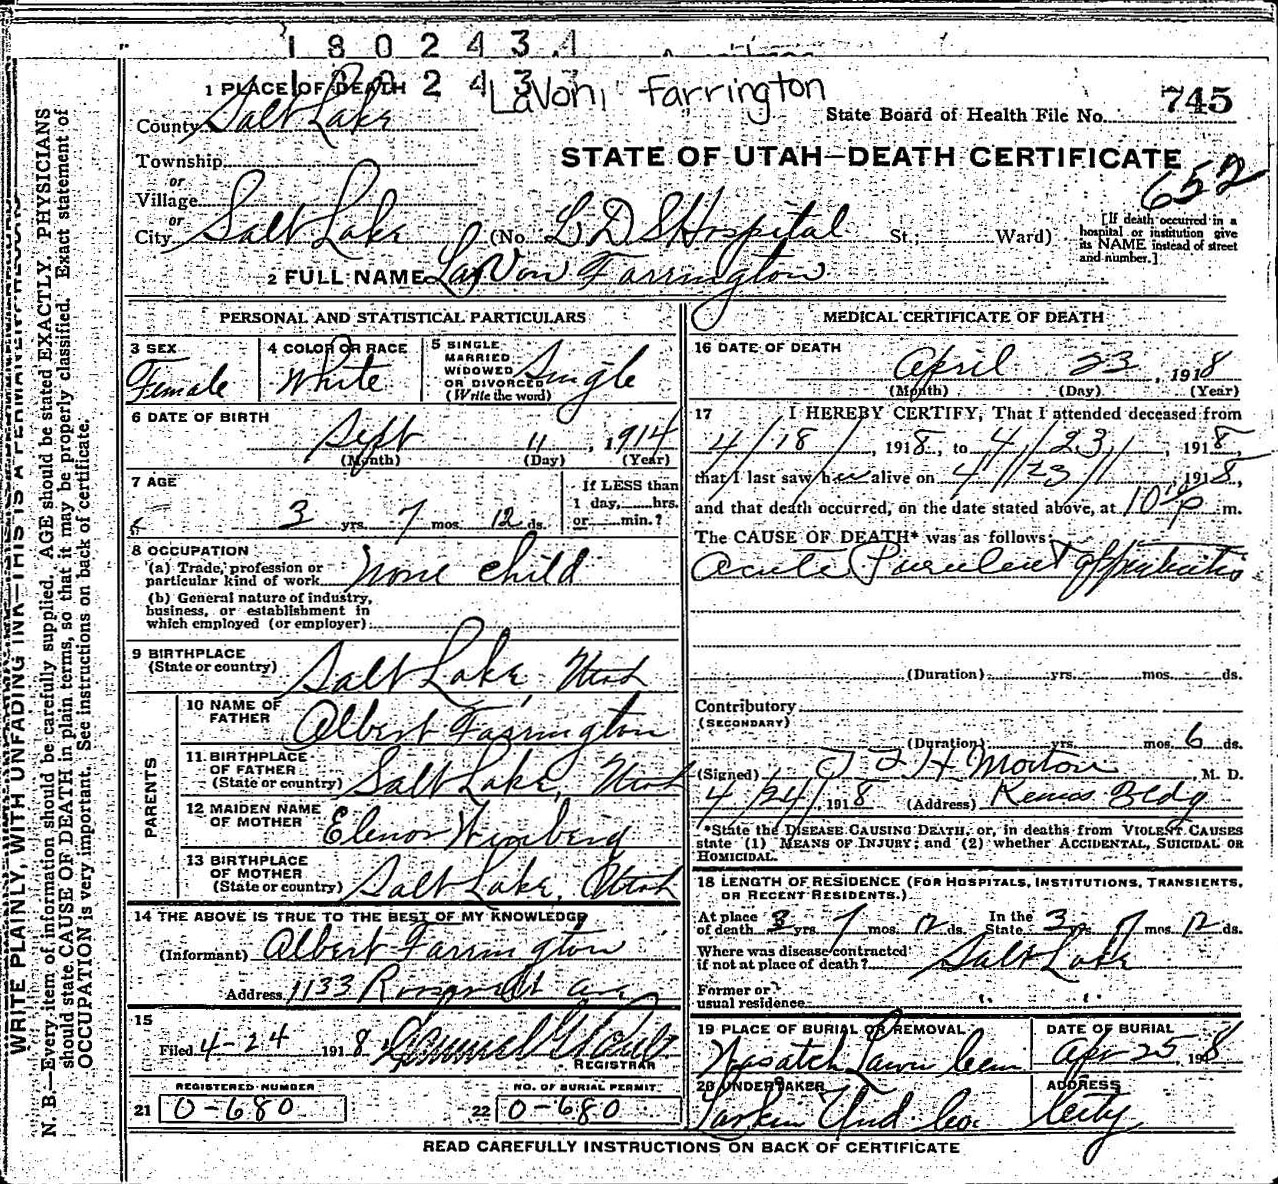 1 8 0 2 4 3 4
1 PLACE OF DEATH 2 4 3 LaVoni Farrington
State Board of Health File No. 745
County Salt Lake
STATE OF UTAH—DEATH CERTIFICATE
652
Township
or
Village
or
City Salt Lake (No. L D S Hospital St.; Ward)
[If death occurred in a
hospital or institution give
its NAME instead of street
and number.]
2 FULL NAME LaVon Farrington
PERSONAL AND STATISTICAL PARTICULARS
3 SEX
Female
4 COLOR OR RACE
White
5 SINGLE
MARRIED
WIDOWED
OR DIVORCED
(Write the word)
Single
6 DATE OF BIRTH
Sept 11, 1914
(Month) (Day) (Year)
7 AGE
3 yrs. 7 mos. 12 ds.
If LESS than
1 day, hrs.
or min.?
8 OCCUPATION
(a) Trade, profession or
particular kind of work None child
(b) General nature of industry,
business, or establishment in
which employed (or employer)
9 BIRTHPLACE
(State or country) Salt Lake, Utah
PARENTS
10 NAME OF
FATHER Albert Farrington
11 BIRTHPLACE
OF FATHER
(State or country) Salt Lake, Utah
12 MAIDEN NAME
OF MOTHER Elenor Wimberg
13 BIRTHPLACE
OF MOTHER
(State or country) Salt Lake, Utah
14 THE ABOVE IS TRUE TO THE BEST OF MY KNOWLEDGE
(Informant) Albert Farrington
Address 1133 Roosevelt ave
15
Filed 4-24 1918
REGISTRAR
REGISTERED NUMBER
21 0-680
NO. OF BURIAL PERMIT
22 0-680
MEDICAL CERTIFICATE OF DEATH
16 DATE OF DEATH
April 23, 1918
(Month) (Day) (Year)
17 I HEREBY CERTIFY, That I attended deceased from
4/18/, 1918, to 4/23/, 1918,
that I last saw her alive on 4/23/ 1918,
and that death occurred, on the date stated above, at 10 p m.
The CAUSE OF DEATH* was as follows:
Acute Purulent appendicitis
(Duration) yrs. mos. ds.
Contributory
(SECONDARY)
(Duration) yrs. mos. 6 ds.
(Signed) Morton, M. D.
4/24/, 1918 (Address) Kearns Bldg
*State the DISEASE CAUSING DEATH, or, in deaths from VIOLENT CAUSES
state (1) MEANS OF INJURY; and (2) whether ACCIDENTAL, SUICIDAL OR
HOMICIDAL.
18 LENGTH OF RESIDENCE (FOR HOSPITALS, INSTITUTIONS, TRANSIENTS,
OR RECENT RESIDENTS.)
At place
of death 3 yrs. 7 mos. 12 ds. In the
State 3 yrs. 7 mos. 12 ds.
Where was disease contracted
if not at place of death? Salt Lake
Former or
usual residence
19 PLACE OF BURIAL OR REMOVAL
Wasatch Lawn Cem
DATE OF BURIAL
Apr 25, 1918
20 UNDERTAKER
Larkin Und Co.
ADDRESS
City
READ CAREFULLY INSTRUCTIONS ON BACK OF CERTIFICATE
WRITE PLAINLY, WITH UNFADING INK—THIS IS A PERMANENT RECORD
N. B.—Every item of information should be carefully supplied. AGE should be stated EXACTLY. PHYSICIANS
should state CAUSE OF DEATH in plain terms, so that it may be properly classified. Exact statement of
OCCUPATION is very important. See instructions on back of certificate.